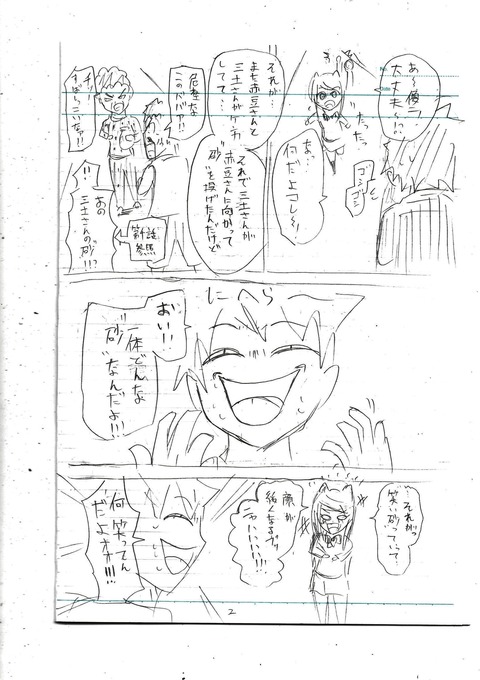 あ〜俺ニ
大丈夫〜!?
たったっ
ゴシゴシ
な…
何だよコレ〜!
それが…
また赤豆さんと
三土さんがケンカ
してて…
それで三土さんが
赤豆さんに向かって
"砂"を投げたんだけど
尼産な
このババァ!!
チッ
すばしっこいな!!
あの
三土さんの砂!!?
!!
第1話
参照
にへら
おい!!
一体どんな
"砂"なんだよ!!!
…それがっ
笑い砂っていって…
顔が
緩くなるヴッ
ニャハハハハ!!!
何笑ってん
だよオオ!!!!
2